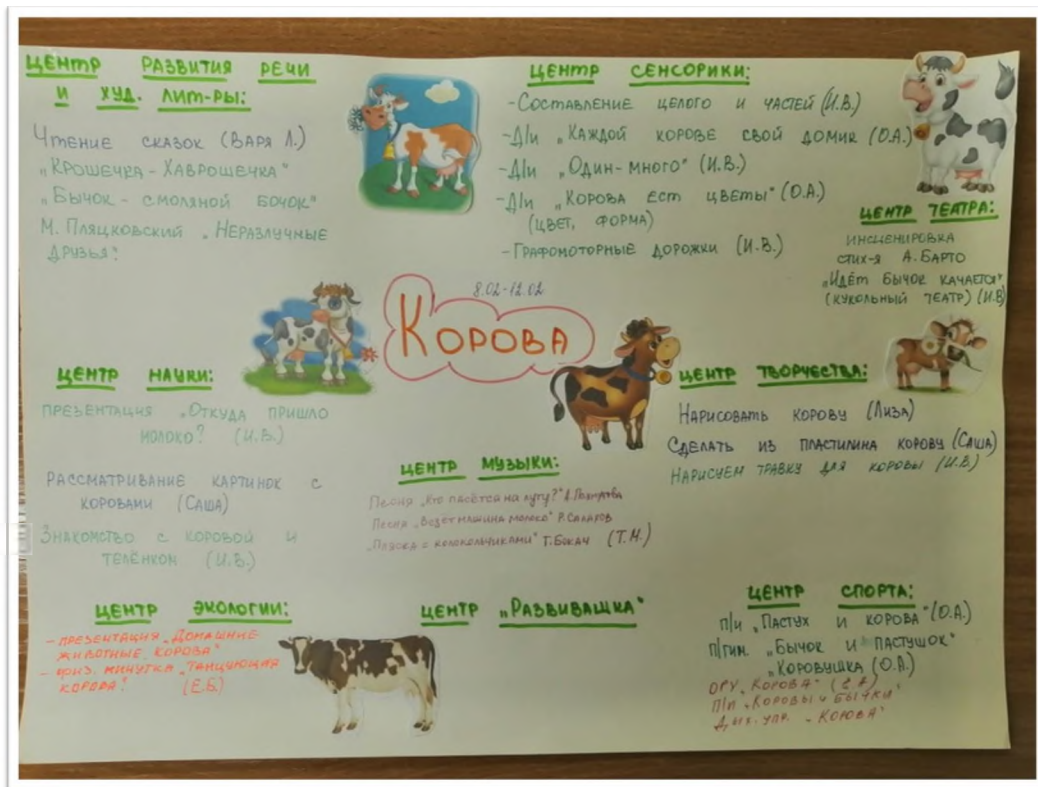 ЦЕНТР РАЗВИТИЯ РЕЧИ
И ХУД. ЛИТ-РЫ:
Чтение сказок (Варя Л.)
„Крошечка-Хаврошечка"
„Бычок-смоляной бочок"
М. Пляцковский „Неразлучные
друзья".
ЦЕНТР СЕНСОРИКИ:
-Составление целого и частей (И.В.)
-Д/и „Каждой корове свой домик (О.А.)
-Д/и „Один-много" (И.В.)
-Д/и „Корова ест цветы" (О.А.)
(цвет, форма)
-Графомоторные дорожки (И.В.)
ЦЕНТР ТЕАТРА:
инсценировка
стих-я А.Барто
„Идёт бычок качается"
(кукольный театр) (И.В)
8.02-12.02
Корова
ЦЕНТР НАУКИ:
Презентация „Откуда пришло
молоко? (И.В.)
Рассматривание картинок с
коровами (Саша)
Знакомство с коровой и
телёнком (И.В.)
ЦЕНТР МУЗЫКИ:
Песня „Кто пасётся на лугу?"
Песня „Везёт машина молоко"
„Пляска с колокольчиками" Т.Бокач (Т.М.)
ЦЕНТР ТВОРЧЕСТВА:
Нарисовать корову (Лиза)
Сделать из пластилина корову (Саша)
Нарисуем травку для коровы (И.В)
ЦЕНТР ЭКОЛОГИИ:
- презентация „Домашние
животные. Корова"
- физ. минутка „Танцующая
корова". (Е.Б.)
ЦЕНТР „РАЗВИВАШКА"
ЦЕНТР СПОРТА:
п/и „Пастух и корова" (О.А.)
п/гим. „Бычок и пастушок"
„Коровушка (О.А.)
ОРУ „Корова"
П/и „Коровы и бычки"
Дых. упр. „Корова"